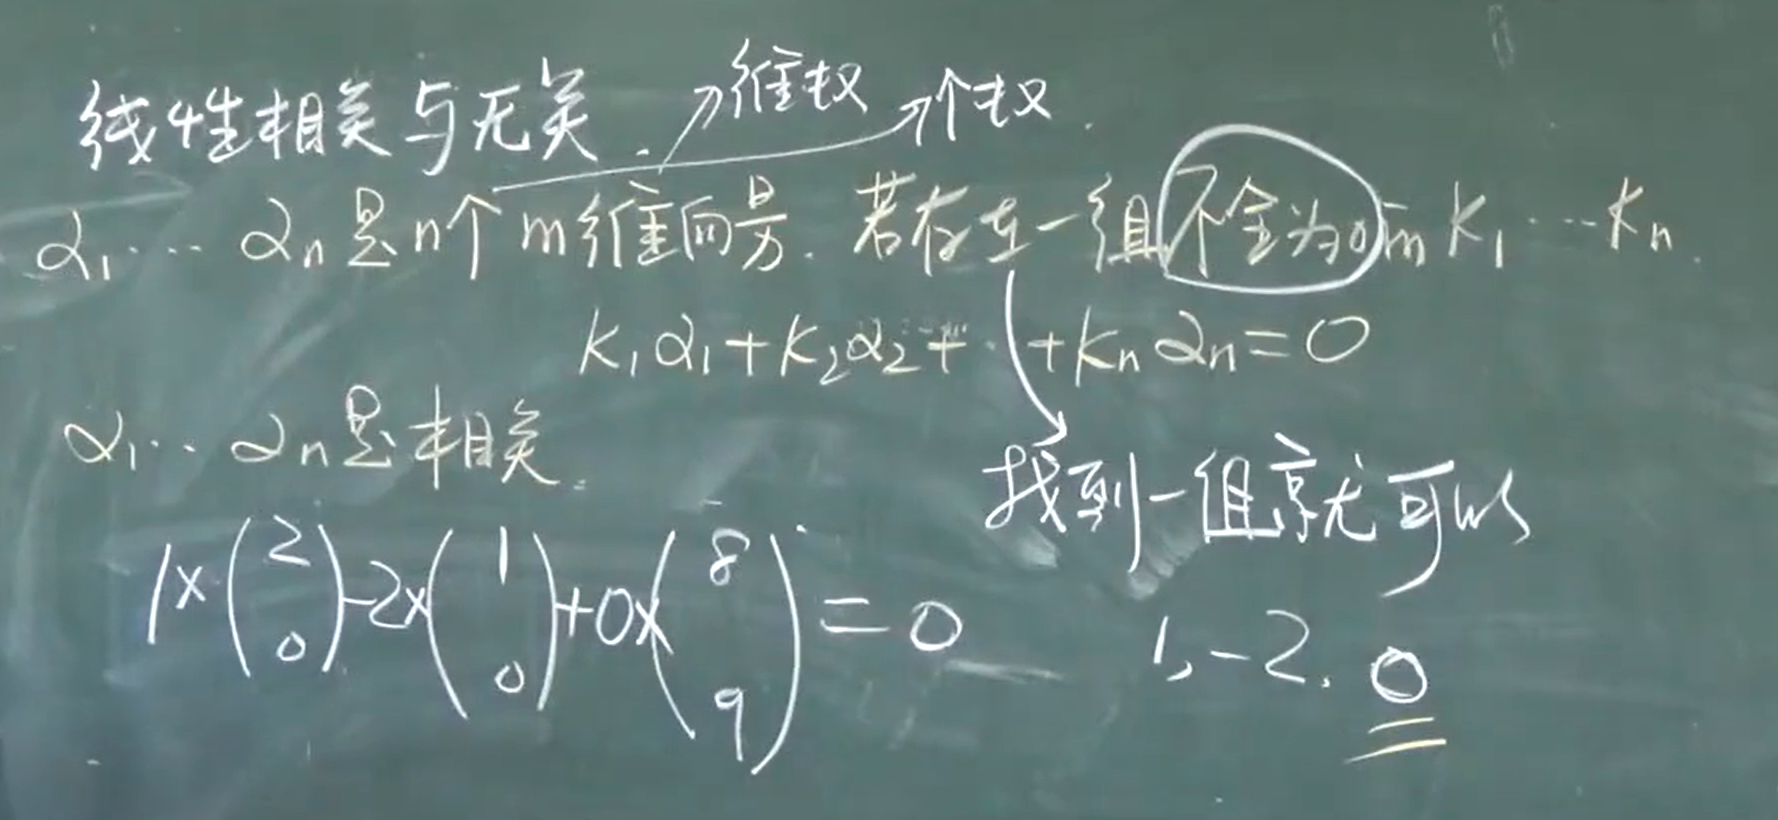 线性相关与无关. 维数 个数.
α₁…… αₙ是n个m维向量. 若存在一组不全为0的 k₁……kₙ.
k₁α₁+k₂α₂+…+kₙαₙ=0
α₁… αₙ是相关.
找到一组就可以
1×(2 0)-2×(1 0)+0×(8 9)=0
1,-2,0